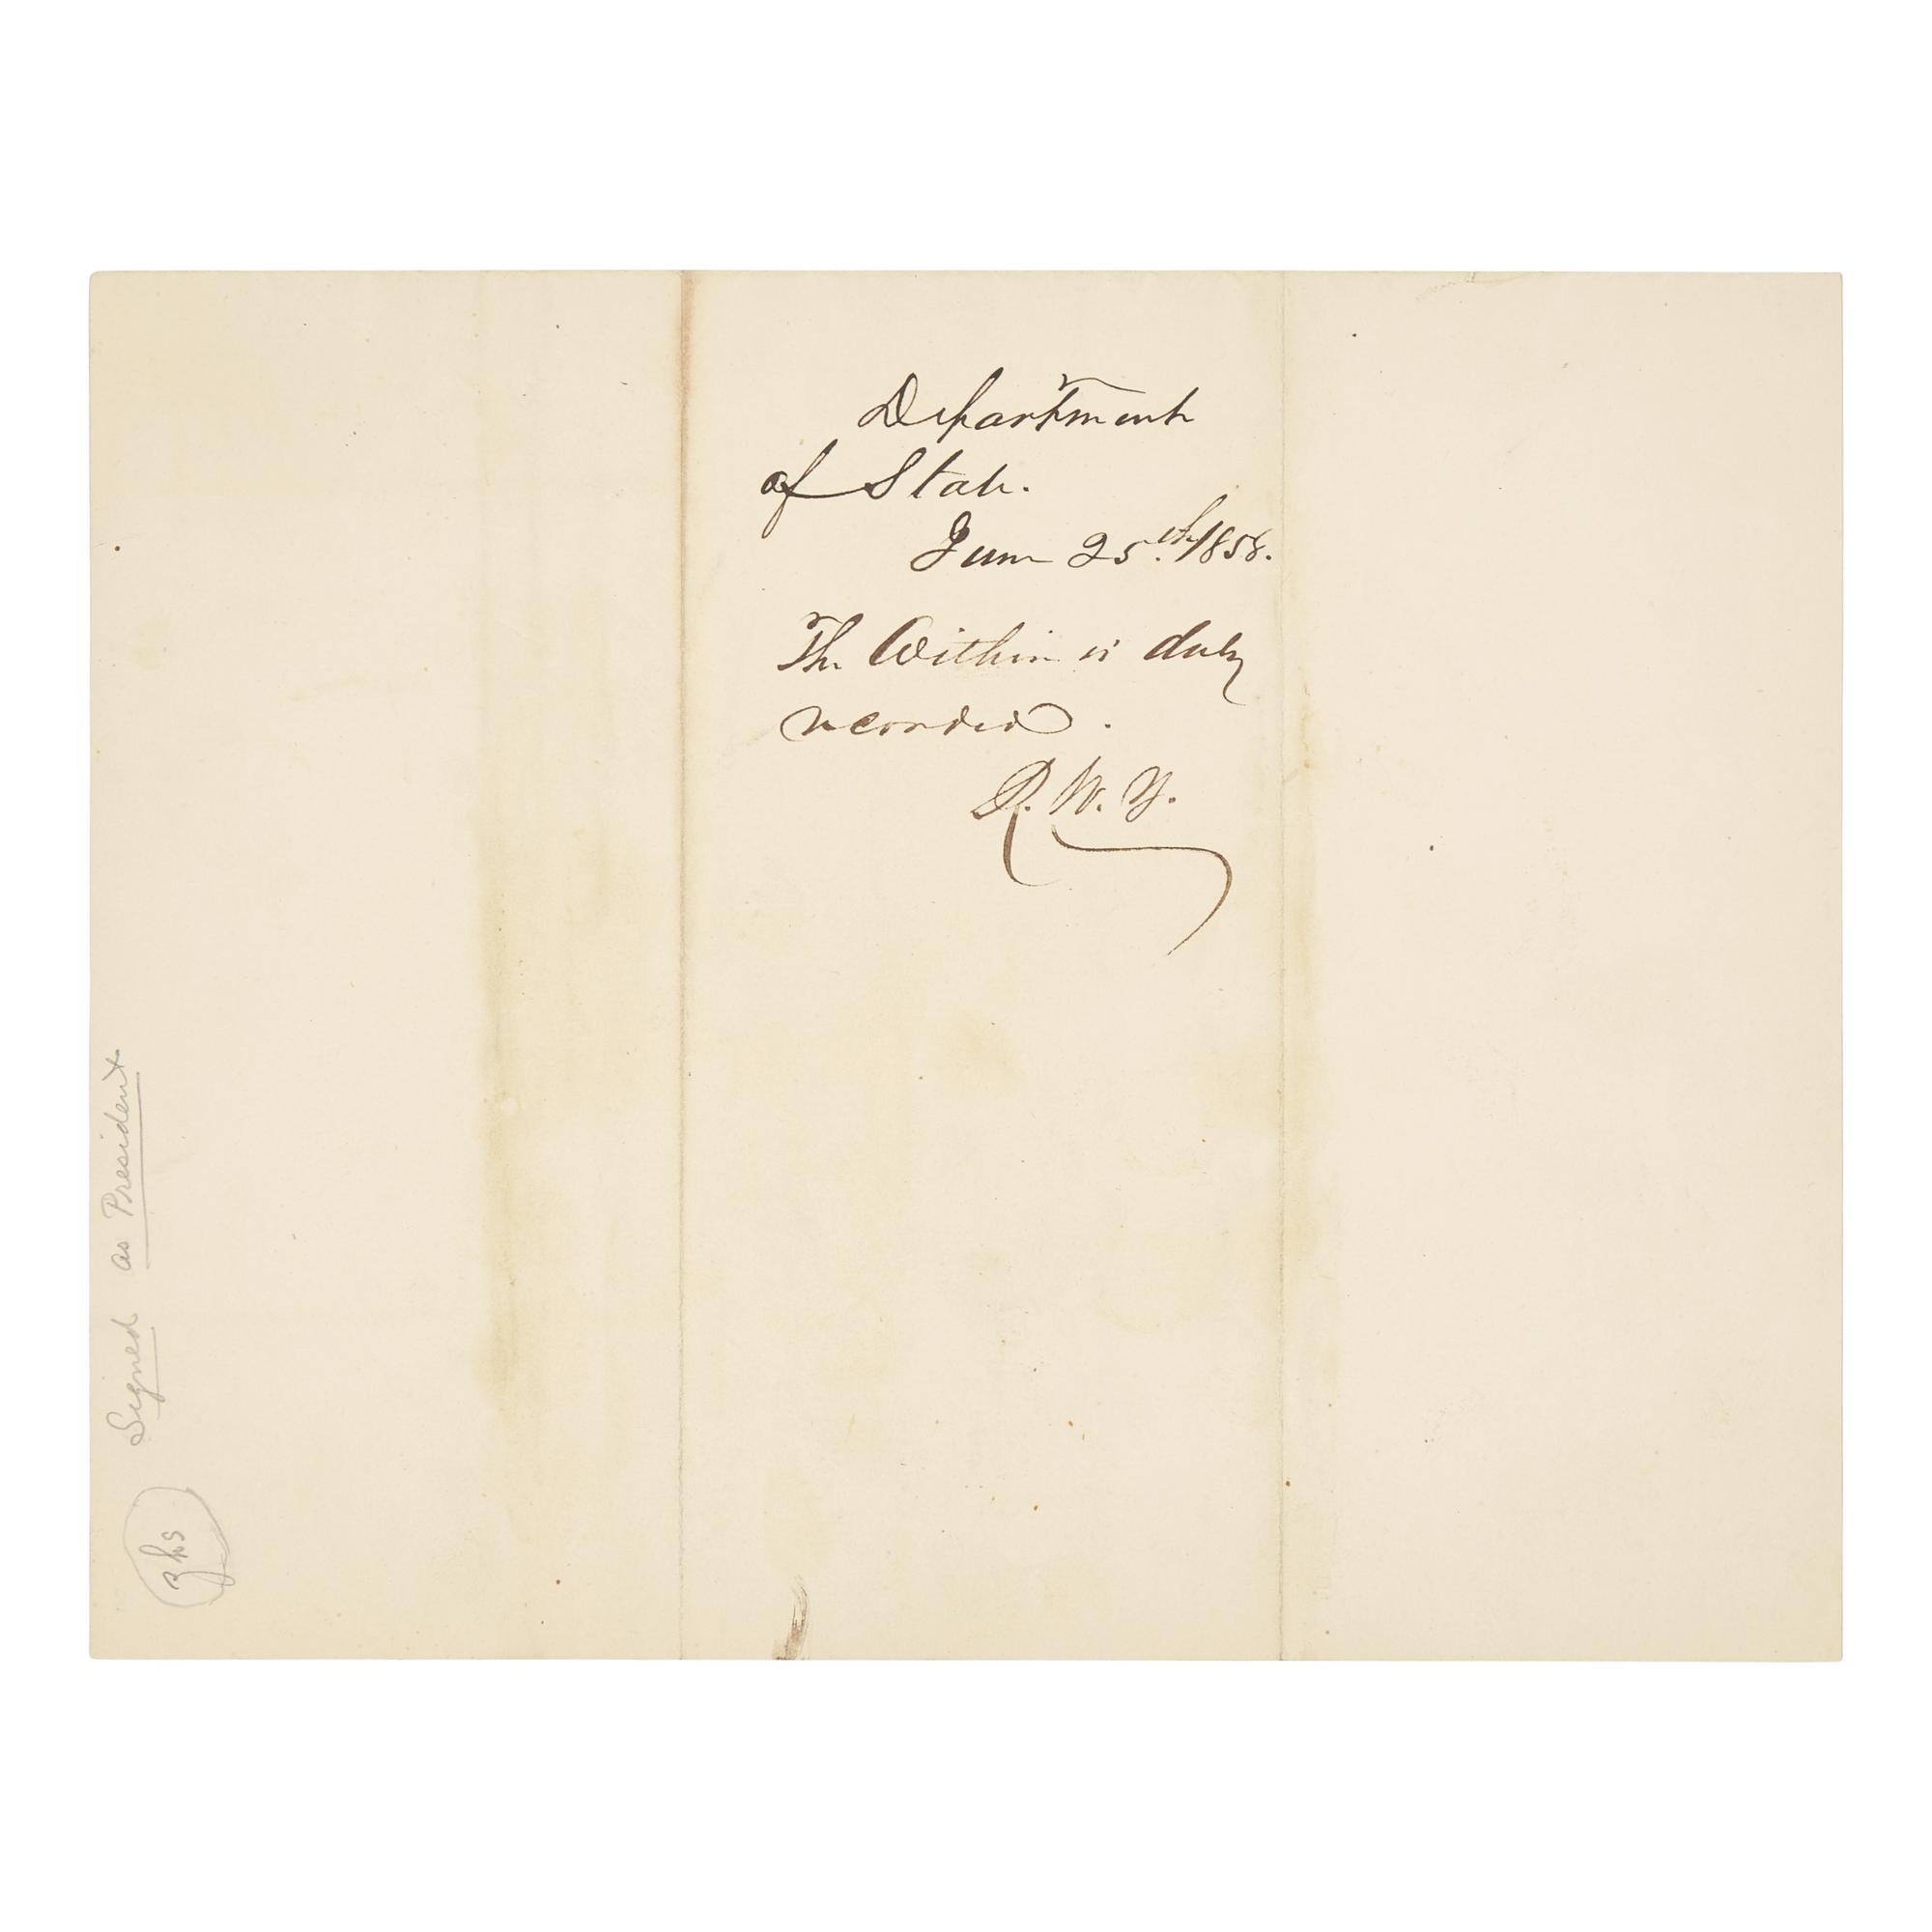 Department
of State.
June 25th. 1858.
The Within is duly
recorded.
R. W. Y.
Signed as President